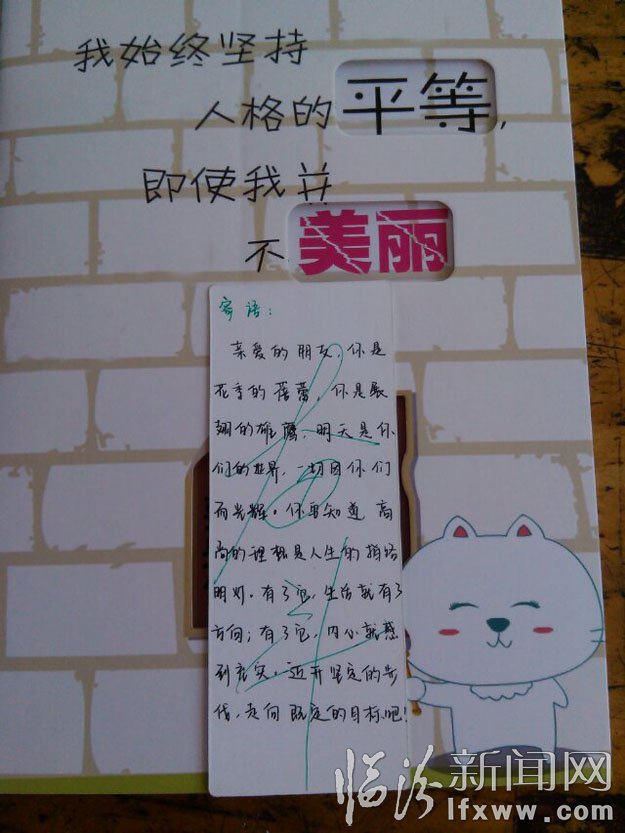 我始终坚持
人格的平等，
即使我并
不美丽
寄语：
亲爱的朋友，你是
花季的蓓蕾，你是展
翅的雄鹰，明天是你
们的世界，一切因你们
而光辉。你要知道 高
尚的理想是人生的指路
明灯。有了它，生活就有了
方向；有了它，内心就感
到充实。迈开坚定的步
伐，走向既定的目标吧！
临汾新闻网
lfxww.com